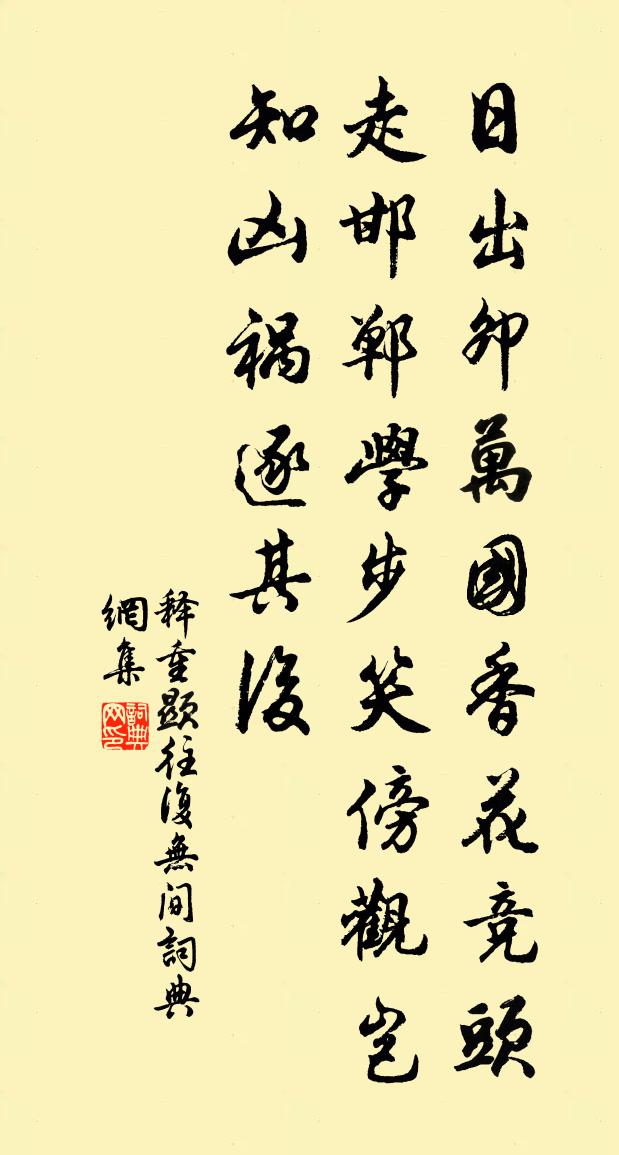 日出卯萬國香花竞頭
走邯鄲學步笑傍觀豈
知凶禍逐其後
释重顯往復無间詞典
網集
詞典網印